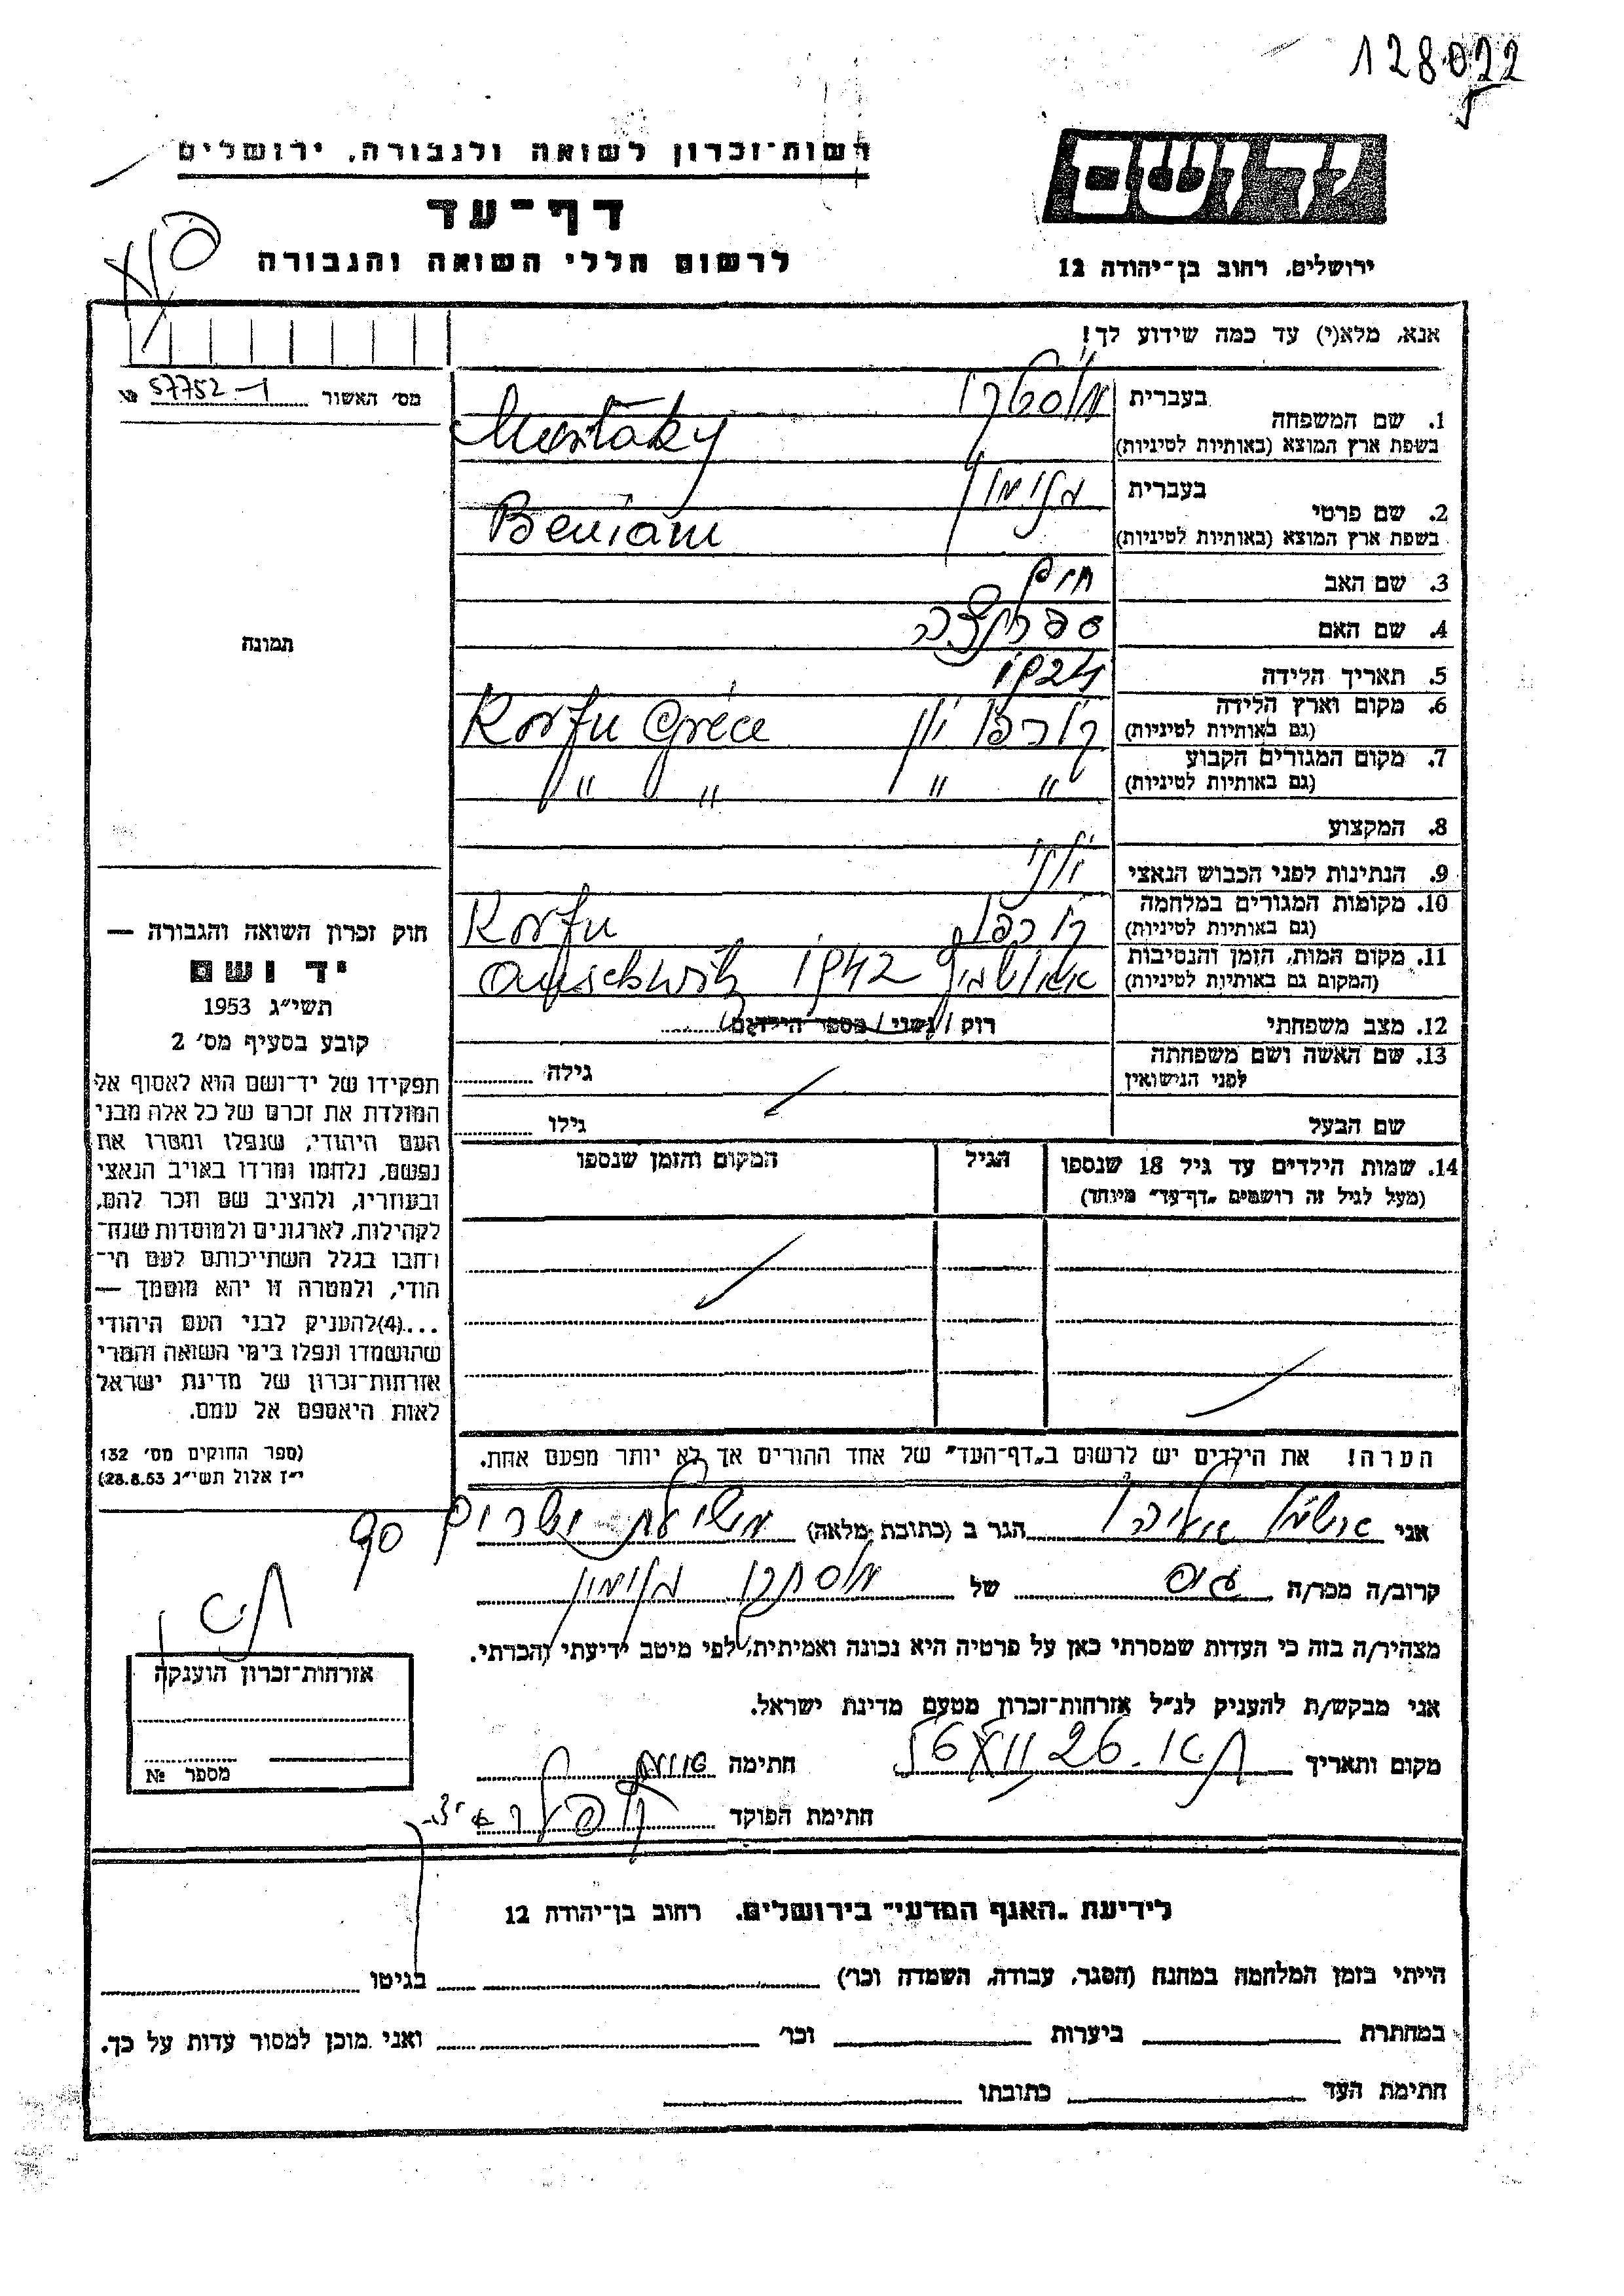 128022
רשות־זכרון לשואה ולגבורה, ירושלים
דף־עד
לרשום חללי השואה והגבורה
ידושם
ירושלים, רחוב בן־יהודה 12
אנא, מלא(י) עד כמה שידוע לך!
מס' האשור 57752-1 №
תמונה
1. שם המשפחה
בעברית
בשפת ארץ המוצא (באותיות לטיניות) Mustaky
2. שם פרטי
בעברית בנימין
בשפת ארץ המוצא (באותיות לטיניות) Beniam
3. שם האב חיים
4. שם האם
5. תאריך הלידה
6. מקום וארץ הלידה קורפו יון Korfu Gréce
(גם באותיות לטיניות)
7. מקום המגורים הקבוע " " " "
(גם באותיות לטיניות)
8. המקצוע
9. הנתינות לפני הכבוש הנאצי יוני
10. מקומות המגורים במלחמה קורפו Korfu
(גם באותיות לטיניות)
11. מקום המות, הזמן והנסיבות אאושביץ 1942 Auschwitz
(המקום גם באותיות לטיניות)
12. מצב משפחתי רוק / נשוי / מספר הילדים
13. שם האשה ושם משפחתה
לפני הנישואין גילה
שם הבעל גילו
14. שמות הילדים עד גיל 18 שנספו
(מעל לגיל זה רושמים "דף־עד" מיוחד)
הגיל
המקום והזמן שנספו
הערה! את הילדים יש לרשום ב"דף־העד" של אחד ההורים אך לא יותר מפעם אחת.
חוק זכרון השואה והגבורה —
יד ושם
תשי"ג 1953
קובע בסעיף מס' 2
תפקידו של יד־ושם הוא לאסוף אל
המולדת את זכרם של כל אלה מבני
העם היהודי, שנפלו ומסרו את
נפשם, נלחמו ומרדו באויב הנאצי
ובעוזריו, ולהציב שם וזכר להם,
לקהילות, לארגונים ולמוסדות שנח־
רחבו בגלל השתייכותם לעם הי־
הודי, ולמטרה זו יהא מוסמך —
...(4)להעניק לבני העם היהודי
שהושמדו ונפלו בימי השואה והמרי
אזרחות־זכרון של מדינת ישראל
לאות היאספם אל עמם.
(ספר החוקים מס' 132
י"ז אלול תשי"ג 28.8.53)
אני הגר ב (כתובת מלאה) 90
קרוב/ה מכר/ה של בנימין
מצהיר/ה בזה כי העדות שמסרתי כאן על פרטיה היא נכונה ואמיתית, לפי מיטב ידיעתי והכרתי.
אני מבקש/ת להעניק לנ"ל אזרחות־זכרון מטעם מדינת ישראל.
מקום ותאריך חתימה
חתימת הפוקד
אזרחות־זכרון הוענקה
מספר №
לידיעת "האגף המדעי" בירושלים, רחוב בן־יהודה 12
הייתי בזמן המלחמה במחנה (הסגר, עבודה, השמדה וכו') בגיטו
במחתרת ביערות וכו' ואני מוכן למסור עדות על כך.
חתימת העד כתובתו